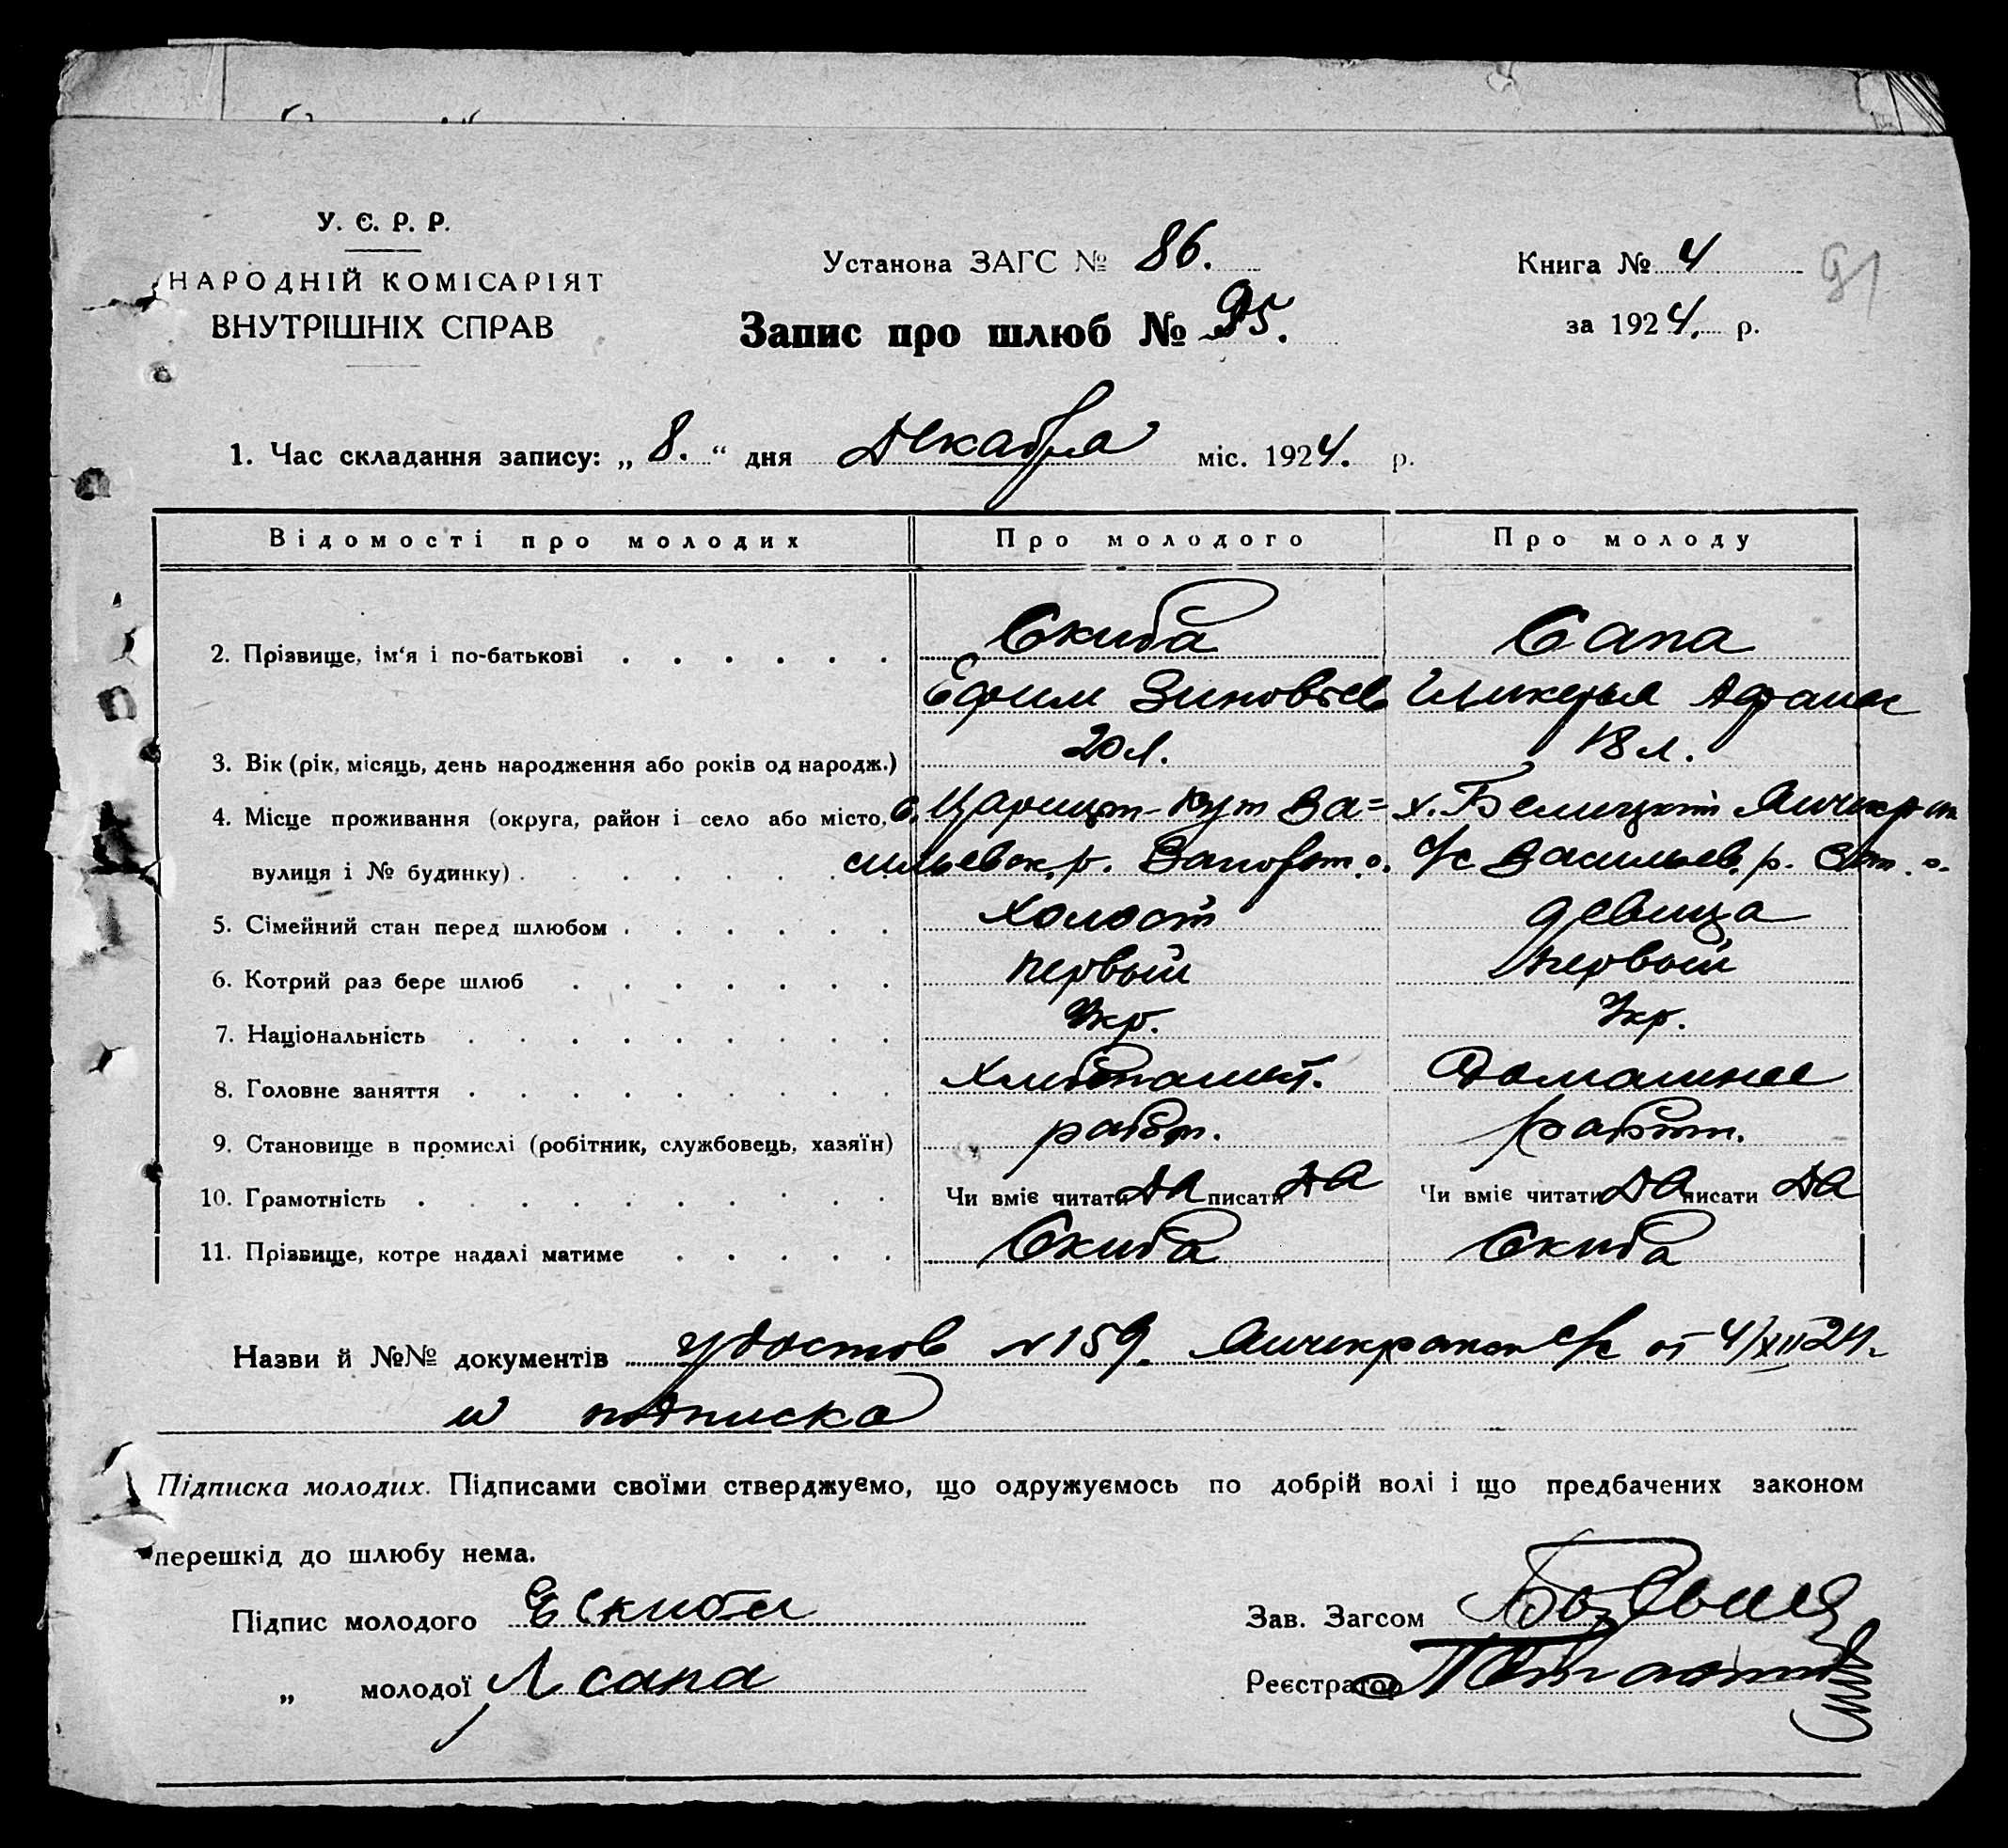 У. Є. Р. Р.
НАРОДНІЙ КОМІСАРІЯТ
ВНУТРІШНІХ СПРАВ
Установа ЗАГС № 86.
Запис про шлюб № 95.
Книга № 4
за 1924. р.
91
1. Час складання запису: „ 8. “ дня Декабря міс. 1924. р.
Відомості про молодих Про молодого Про молоду
2. Прізвище, ім‘я і по-батькові Скиба Сапа
Ефим Зиновьев Афанас
3. Вік (рік, місяць, день народження або років од народж.) 20 л. 18 л.
4. Місце проживання (округа, район і село або місто, с. Царицын-Кут Ва= х. Белицкий Янчекр
вулиця і № будинку) сильевск. р. Запорож. о. с/с Васильев. р. о.
5. Сімейний стан перед шлюбом холост девица
6. Котрий раз бере шлюб первый первый
7. Національність Укр. Укр.
8. Головне заняття Хлебопашест. Домашнее
9. Становище в промислі (робітник, службовець, хазяїн) работ. работн.
10. Грамотність Чи вміє читати ДА писати ДА Чи вміє читати ДА писати ДА
11. Прізвище, котре надалі матиме Скиба Скиба
Назви й №№ документів удостов N 159. Янчекракск с/с от 4/XII 24 г.
и подписка
Підписка молодих. Підписами своїми стверджуємо, що одружуємось по добрій волі і що предбачених законом
перешкід до шлюбу нема.
Підпис молодого Е Скиба Зав. Загсом
„ молодої Л сапа Реєстратор